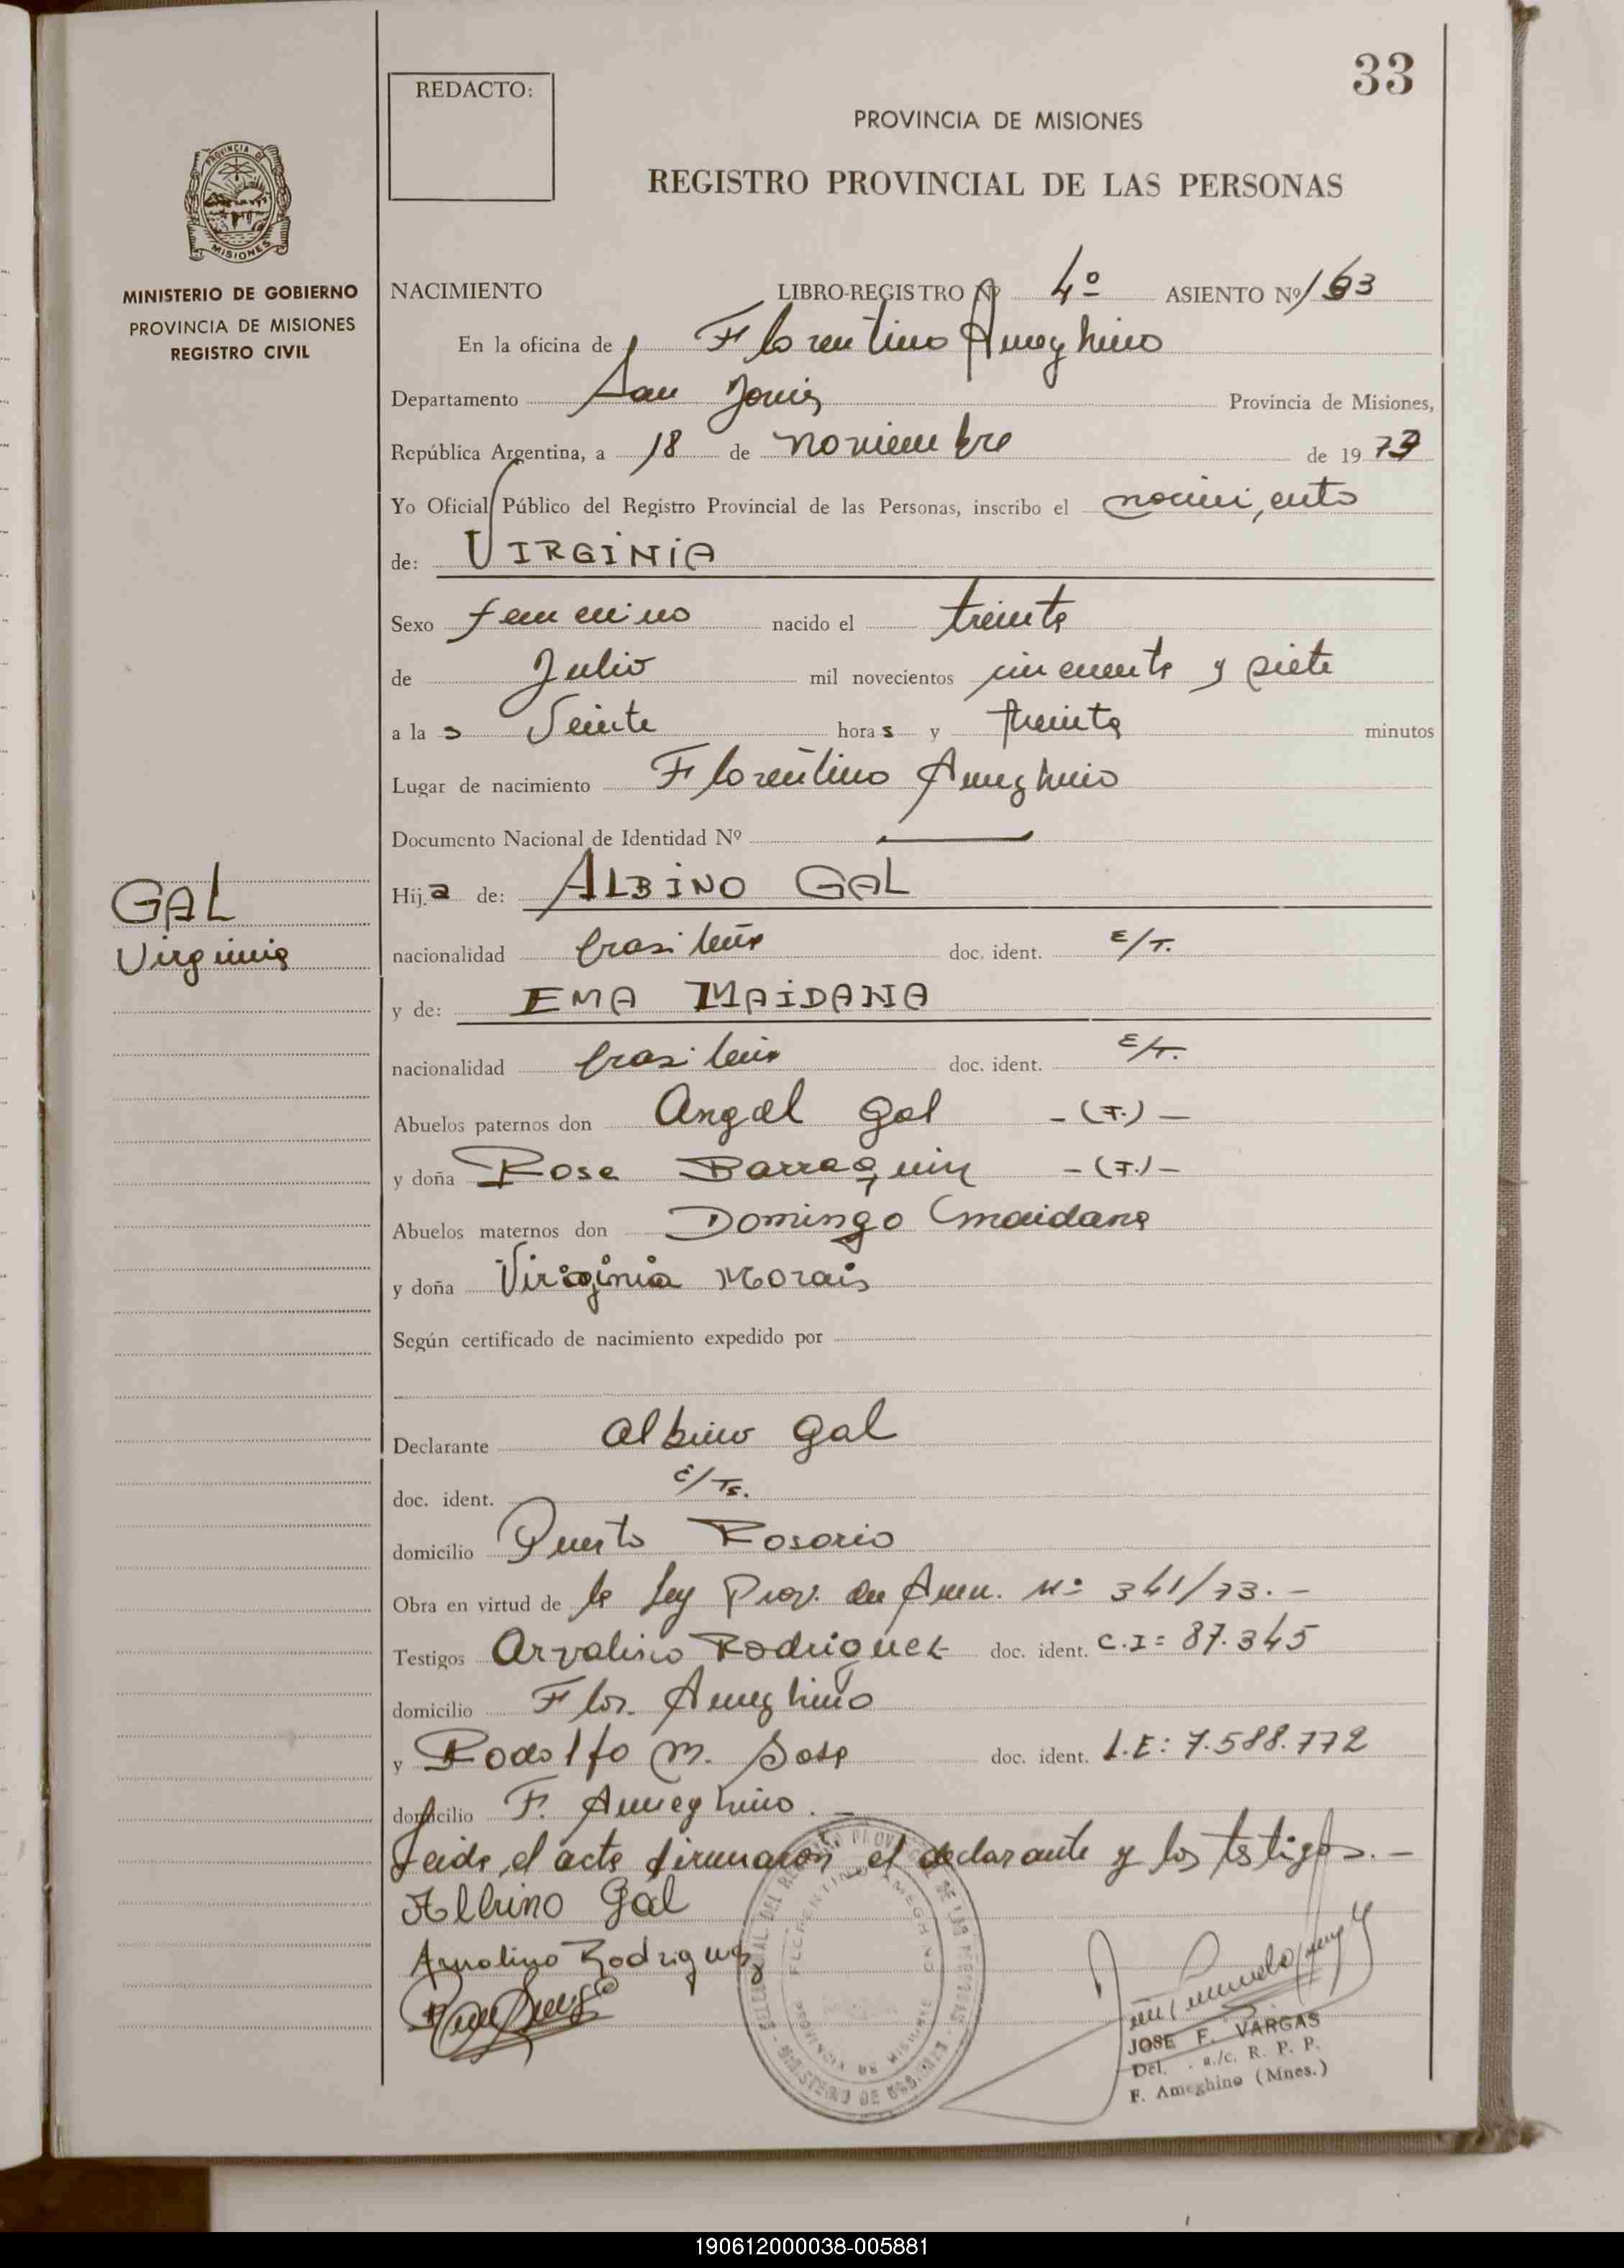 33
REDACTO:
PROVINCIA DE MISIONES
REGISTRO PROVINCIAL DE LAS PERSONAS
PROVINCIA DE
MISIONES
MINISTERIO DE GOBIERNO
PROVINCIA DE MISIONES
REGISTRO CIVIL
NACIMIENTO LIBRO-REGISTRO Nº 4º ASIENTO Nº 163
En la oficina de Florentino Ameghino
Departamento San Javier Provincia de Misiones,
República Argentina, a 18 de noviembre de 1973
Yo Oficial Público del Registro Provincial de las Personas, inscribo el nacimiento
de: VIRGINIA
Sexo femenino nacido el treinta
de Julio mil novecientos cincuenta y siete
a las Veinte horas y treinta minutos
Lugar de nacimiento Florentino Ameghino
Documento Nacional de Identidad Nº
GAL
Virginia
Hija de: ALBINO GAL
nacionalidad brasileña doc. ident. E/T.
y de: EMA MAIDANA
nacionalidad brasileña doc. ident. E/T.
Abuelos paternos don Angel Gal -(F.)-
y doña Rosa Barraquin -(F.)-
Abuelos maternos don Domingo Maidana
y doña Virginia Morais
Según certificado de nacimiento expedido por
Declarante Albino Gal
doc. ident. E/Ts.
domicilio Puerto Rosario
Obra en virtud de la Ley Prov. de Amn. Nº 341/73.-
Testigos Arvalino Rodriguez doc. ident. C.I= 87.345
domicilio Flor. Ameghino
y Rodolfo M. Sosa doc. ident. L.E: 7.588.772
domicilio F. Ameghino.-
Leida el acta firmaron el declarante y los testigos.-
Albino Gal
Arvalino Rodriguez
JOSE F. VARGAS
Del. a./c. R. P. P.
F. Ameghino (Mnes.)
190612000038-005881